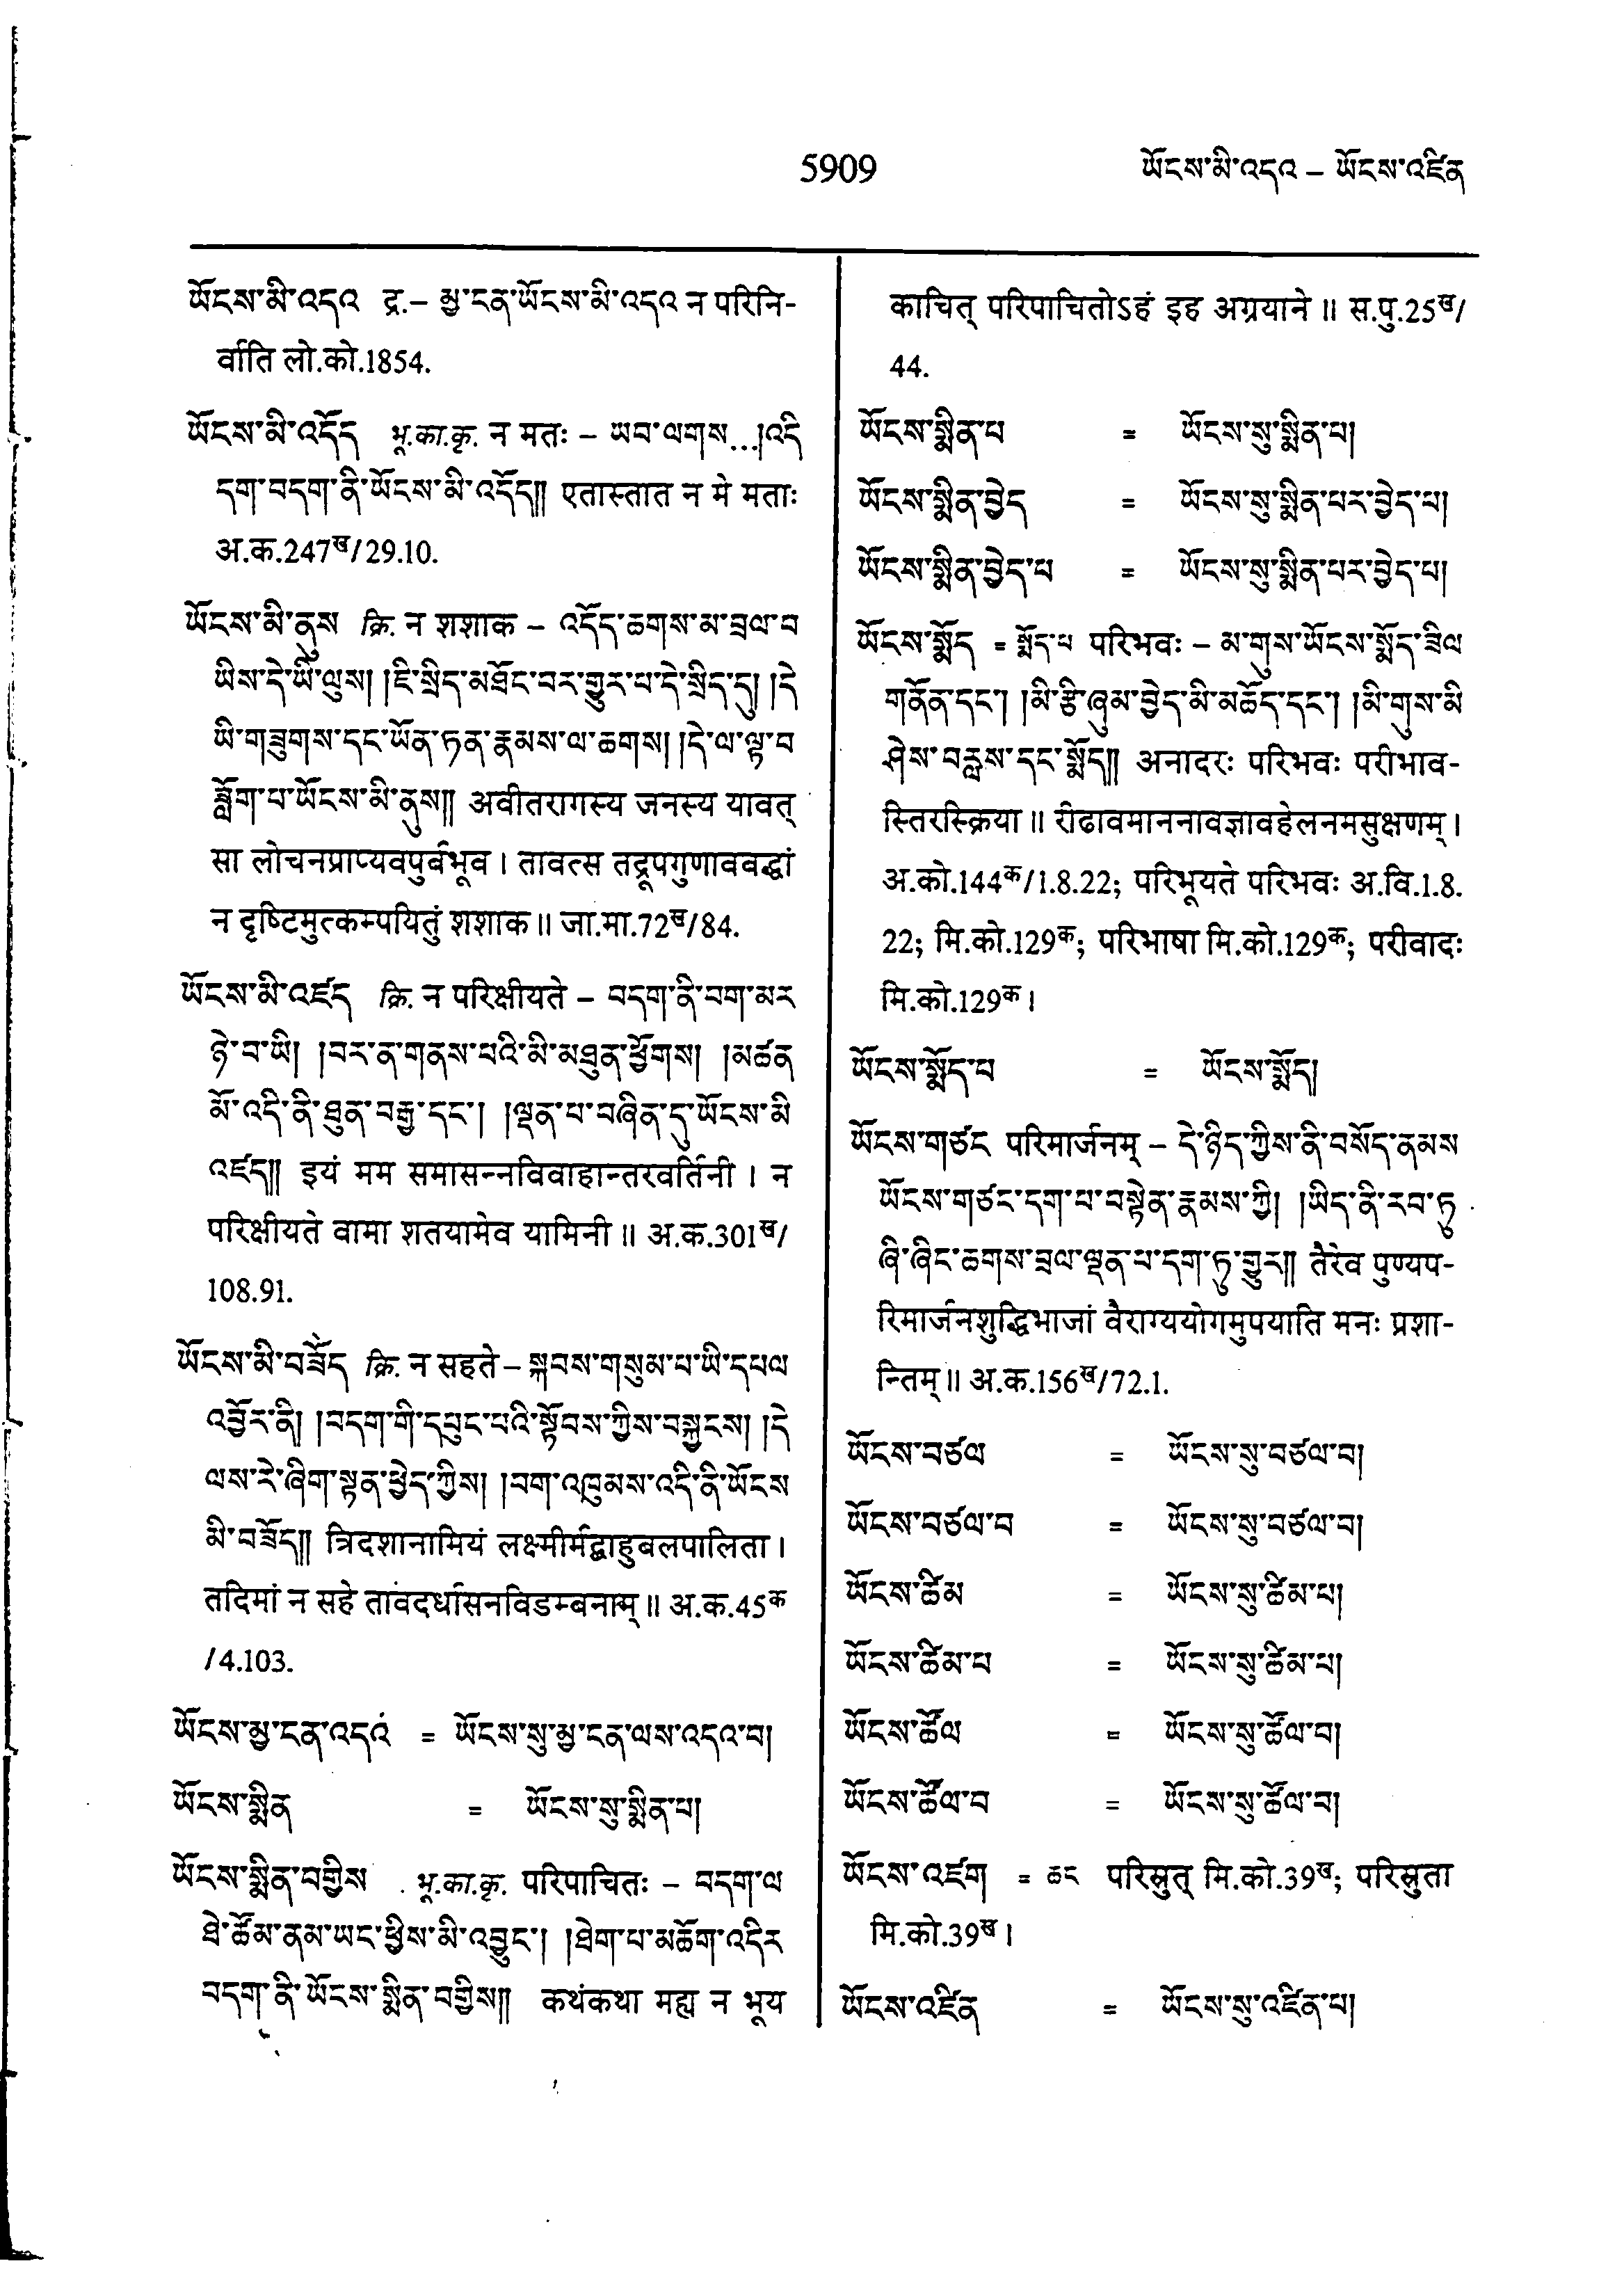 5909
ཡོངས་མི་འདའ – ཡོངས་འཛིན
ཡོངས་མི་འདའ द्र.– མྱ་ངན་ཡོངས་མི་འདའ न परिनि-
र्वाति लो.को.1854.
ཡོངས་མི་འདོད भू.का.कृ. न मतः – ཡབ་ལགས...།འདི
དག་བདག་ནི་ཡོངས་མི་འདོད།། एतास्तात न मे मताः
अ.क.247ख/29.10.
ཡོངས་མི་ནུས क्रि. न शशाक – འདོད་ཆགས་མ་བྲལ་བ
ཡིས་དེ་ཡི་ལུས། །ཇི་སྲིད་མཐོང་བར་གྱུར་པ་དེ་སྲིད་དུ། །དེ
ཡི་གཟུགས་དང་ཡོན་ཏན་རྣམས་ལ་ཆགས། །དེ་ལ་ལྟ་བ
ཟློག་པ་ཡོངས་མི་ནུས།། अवीतरागस्य जनस्य यावत्
सा लोचनप्राप्यवपुर्वभूव । तावत्स तद्रूपगुणाववद्धां
न दृष्टिमुत्कम्पयितुं शशाक ॥ जा.मा.72ख/84.
ཡོངས་མི་འཛད क्रि. न परिक्षीयते – བདག་ནི་བག་མར
ཉེ་བ་ཡི། །བར་ན་གནས་པའི་མི་མཐུན་ཕྱོགས། །མཚན
མོ་འདི་ནི་ཐུན་བརྒྱ་དང་། །ལྡན་པ་བཞིན་དུ་ཡོངས་མི
འཛད།། इयं मम समासन्नविवाहान्तरवर्तिनी । न
परिक्षीयते वामा शतयामेव यामिनी ॥ अ.क.301ख/
108.91.
ཡོངས་མི་བཟོད क्रि. न सहते – སྐབས་གསུམ་པ་ཡི་དཔལ
འབྱོར་ནི། །བདག་གི་དཔུང་པའི་སྟོབས་ཀྱིས་བསྐྱངས། །དེ
ལས་རེ་ཞིག་སྟན་ཕྱེད་ཀྱིས། །བག་འཁུམས་འདི་ནི་ཡོངས
མི་བཟོད།། त्रिदशानामियं लक्ष्मीर्मद्बाहुबलपालिता ।
तदिमां न सहे तावदर्धासनविडम्बनाम् ॥ अ.क.45क
/4.103.
ཡོངས་མྱ་ངན་འདའ = ཡོངས་སུ་མྱ་ངན་ལས་འདའ་བ།
ཡོངས་སྨིན = ཡོངས་སུ་སྨིན་པ།
ཡོངས་སྨིན་བགྱིས भू.का.कृ. परिपाचितः – བདག་ལ
ཐེ་ཚོམ་ནམ་ཡང་ཕྱིས་མི་འབྱུང་། །ཐེག་པ་མཆོག་འདིར
བདག་ནི་ཡོངས་སྨིན་བགྱིས།། कथंकथा मह्य न भूय
काचित् परिपाचितोऽहं इह अग्रयाने ॥ स.पु.25ख/
44.
ཡོངས་སྨིན་པ = ཡོངས་སུ་སྨིན་པ།
ཡོངས་སྨིན་བྱེད = ཡོངས་སུ་སྨིན་པར་བྱེད་པ།
ཡོངས་སྨིན་བྱེད་པ = ཡོངས་སུ་སྨིན་པར་བྱེད་པ།
ཡོངས་སྨོད = སྨོད་པ परिभवः – མ་གུས་ཡོངས་སྨོད་ཟིལ
གནོན་དང་། །མི་རྩི་ཞུམ་བྱེད་མི་མཆོད་དང་། །མི་གུས་མི
ཤེས་བརྙས་དང་སྨོད།། अनादरः परिभवः परीभाव-
स्तिरस्क्रिया ॥ रीढावमाननावज्ञावहेलनमसुक्षणम् ।
अ.को.144क/1.8.22; परिभूयते परिभवः अ.वि.1.8.
22; मि.को.129क; परिभाषा मि.को.129क; परीवादः
मि.को.129क ।
ཡོངས་སྨོད་པ = ཡོངས་སྨོད།
ཡོངས་གཙང परिमार्जनम् – དེ་ཉིད་ཀྱིས་ནི་བསོད་ནམས
ཡོངས་གཙང་དག་པ་བསྟེན་རྣམས་ཀྱི། །ཡིད་ནི་རབ་ཏུ
ཞི་ཞིང་ཆགས་བྲལ་ལྡན་པ་དག་ཏུ་གྱུར།། तैरेव पुण्यप-
रिमार्जनशुद्धिभाजां वैराग्ययोगमुपयाति मनः प्रशा-
न्तिम् ॥ अ.क.156ख/72.1.
ཡོངས་བཙལ = ཡོངས་སུ་བཙལ་བ།
ཡོངས་བཙལ་བ = ཡོངས་སུ་བཙལ་བ།
ཡོངས་ཚིམ = ཡོངས་སུ་ཚིམ་པ།
ཡོངས་ཚིམ་པ = ཡོངས་སུ་ཚིམ་པ།
ཡོངས་ཚོལ = ཡོངས་སུ་ཚོལ་བ།
ཡོངས་ཚོལ་བ = ཡོངས་སུ་ཚོལ་བ།
ཡོངས་འཛག = ཆང परिस्रुत् मि.को.39ख; परिस्रुता
मि.को.39ख ।
ཡོངས་འཛིན = ཡོངས་སུ་འཛིན་པ།